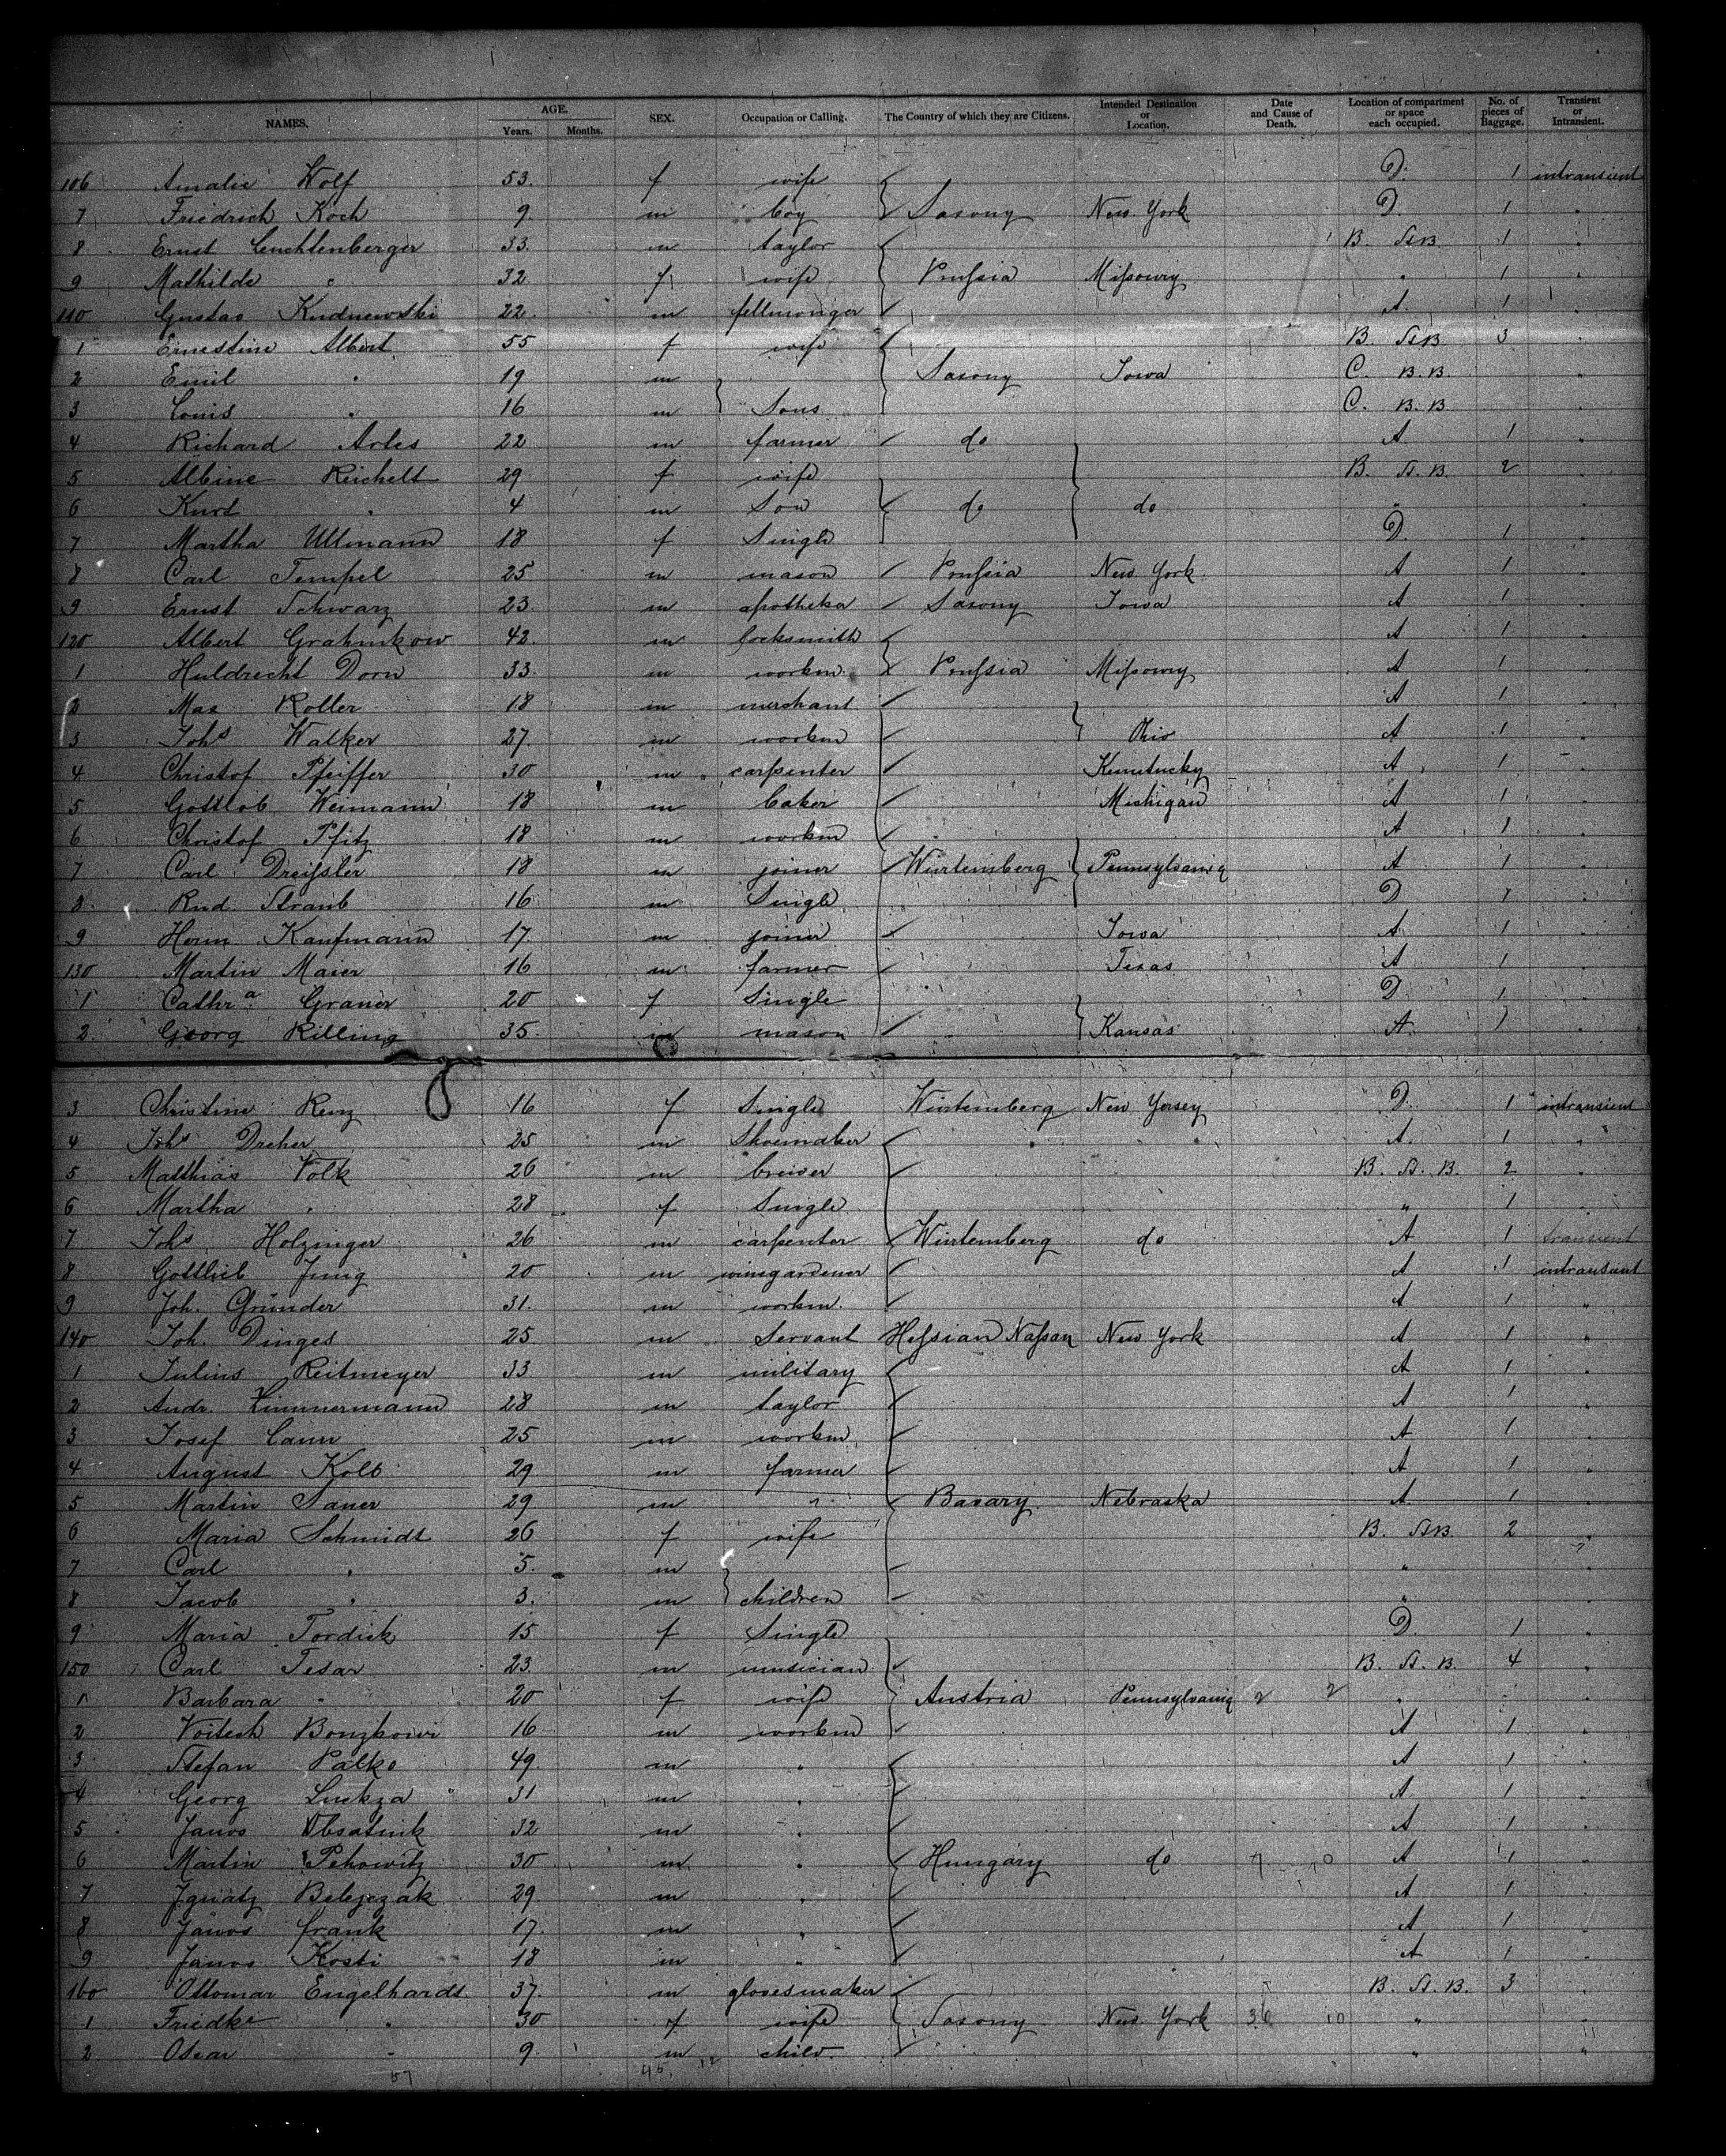 NAMES. AGE. Years. Months. SEX. Occupation or Calling. The Country of which they are Citizens. Intended Destination or Location. Date and Cause of Death. Location of compartment or space each occupied. No. of pieces of Baggage. Transient or Intransient.
106 Amalie Wolf 53. f wife D. 1 intransient
7 Friedrich Koch 9. m boy Saxony New York D 1 "
8 Ernst Leuchtenberger 33. m taylor B. StB. 1 "
9 Mathilde " 32 f wife Prussia Missoury " 1 "
110 Gustav Kudnewski 22. m fellmonger A. 1 "
1 Ernestine Albert 55 f wife B. StB. 3 "
2 Emil " 19 m Saxony Iowa C. B.B. "
3 Louis " 16 m Sons C. B.B "
4 Richard Arles 22 m farmer do A 1 "
5 Albine Reichelt 29 f wife B. St.B. 2 "
6 Kurt " 4 m Son do do " "
7 Martha Ullmann 18 f Single D. 1 "
8 Carl Tempel 25 m mason Prussia New York. A 1 "
9 Ernst Schwarz 23. m apotheka Saxony Iowa A 1 "
120 Albert Grahmkow 42. m locksmith A 1 "
1 Huldrecht Dorn 33. m workm. Prussia Missoury A 1 "
2 Max Koller 18 m merchant A 1 "
3 Johs Walker 27. m workm Ohio A 1 "
4 Christof Pfeiffer 30 m carpenter Kuntucky A 1 "
5 Gottlob Weimann 18 m baker Michigan A 1 "
6 Christof Pfitz 18 m workm A 1 "
7 Carl Dreissler 18 m joiner Würtemberg Pennsylvania A 1 "
8 Rud. Straub 16 m Single D 1 "
9 Herm. Kaufmann 17. m joiner Iowa A. 1 "
130 Martin Maier 16 m farmer Texas A 1 "
1 Cathra Graner 20 f Single D 1 "
2 Georg Rilling 35. m mason Kansas A. 1 "
3 Christine Renz 16 f Single Würtemberg New Yersey D. 1 intransient
4 Johs Dreher 25 m Shoemaker " " A. 1 "
5 Matthias Volk 26 m brewer B. St.B. 2 "
6 Martha " 28 f Single " 1 "
7 Johs Holzinger 26 m carpenter Würtemberg do A 1 transient
8 Gottlieb Jung 20 m winegardener A 1 intransient
9 Joh. Gründer 31. m workm. A 1 "
140 Joh. Dinges 25 m Servant Hessian Nassau New York A 1 "
1 Julius Reitmeyer 33 m military A 1 "
2 Andr. Zimmermann 28 m taylor A 1 "
3 Josef m 25 workm A 1 "
4 August Kolb 29 m farmer A 1 "
5 Martin Sauer 29 m " Bavary. Nebraska A. 1 "
6 Maria Schmidt 26 f wife B. StB. 2 "
7 Carl " 5. m " "
8 Jacob " 3. m children " "
9 Maria Tordick 15 f Single D. 1 "
150 Carl Tesar 23. m musician B. St.B. 4 "
1 Barbara " 20 f wife Austria Pennsylvania 2 2 " "
2 Voitech 16 m workm A 1 "
3 Stefan Palko 49 m " A 1 "
4 Georg Luckza 31 m " A 1 "
5 Janos 32 m " A 1 "
6 Martin Pehowitz 30 m " Hungary do 7 10 A 1 "
7 Ignatz Belejczak 29 m " A 1 "
8 Janos Frank 17. m " A 1 "
9 Janos Kosti 18 m " A 1 "
160 Ottomar Engelhardt 37. m glovesmaker B. St.B. 3 "
1 Friedke " 30 f wife Saxony New York 36 10 " "
2 Oscar " 9 m child. " "
57 45 12